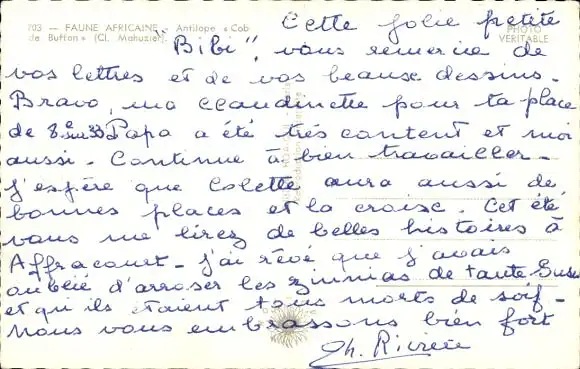 703 — FAUNE AFRICAINE - Antilope « Cob
de Buffon » (Cl. Mahuzier)
PHOTO
VERITABLE
Cette jolie petite
"Bibi", vous remercie de
vos lettres et de vos beaux dessins.
Bravo, ma Claudinette pour ta place
de 8e sur 33 Papa a été très content et moi
aussi. Continue à bien travailler.
J'espère que Colette aura aussi de
bonnes places et la croix. Cet été
vous me lirez de belles histoires à
Affracourt - J'ai rêvé que j'avais
oublié d'arroser les zinnias de tante Suzu
et qu'ils étaient tous morts de soif -
Nous vous embrassons bien fort
Ch. Rivière